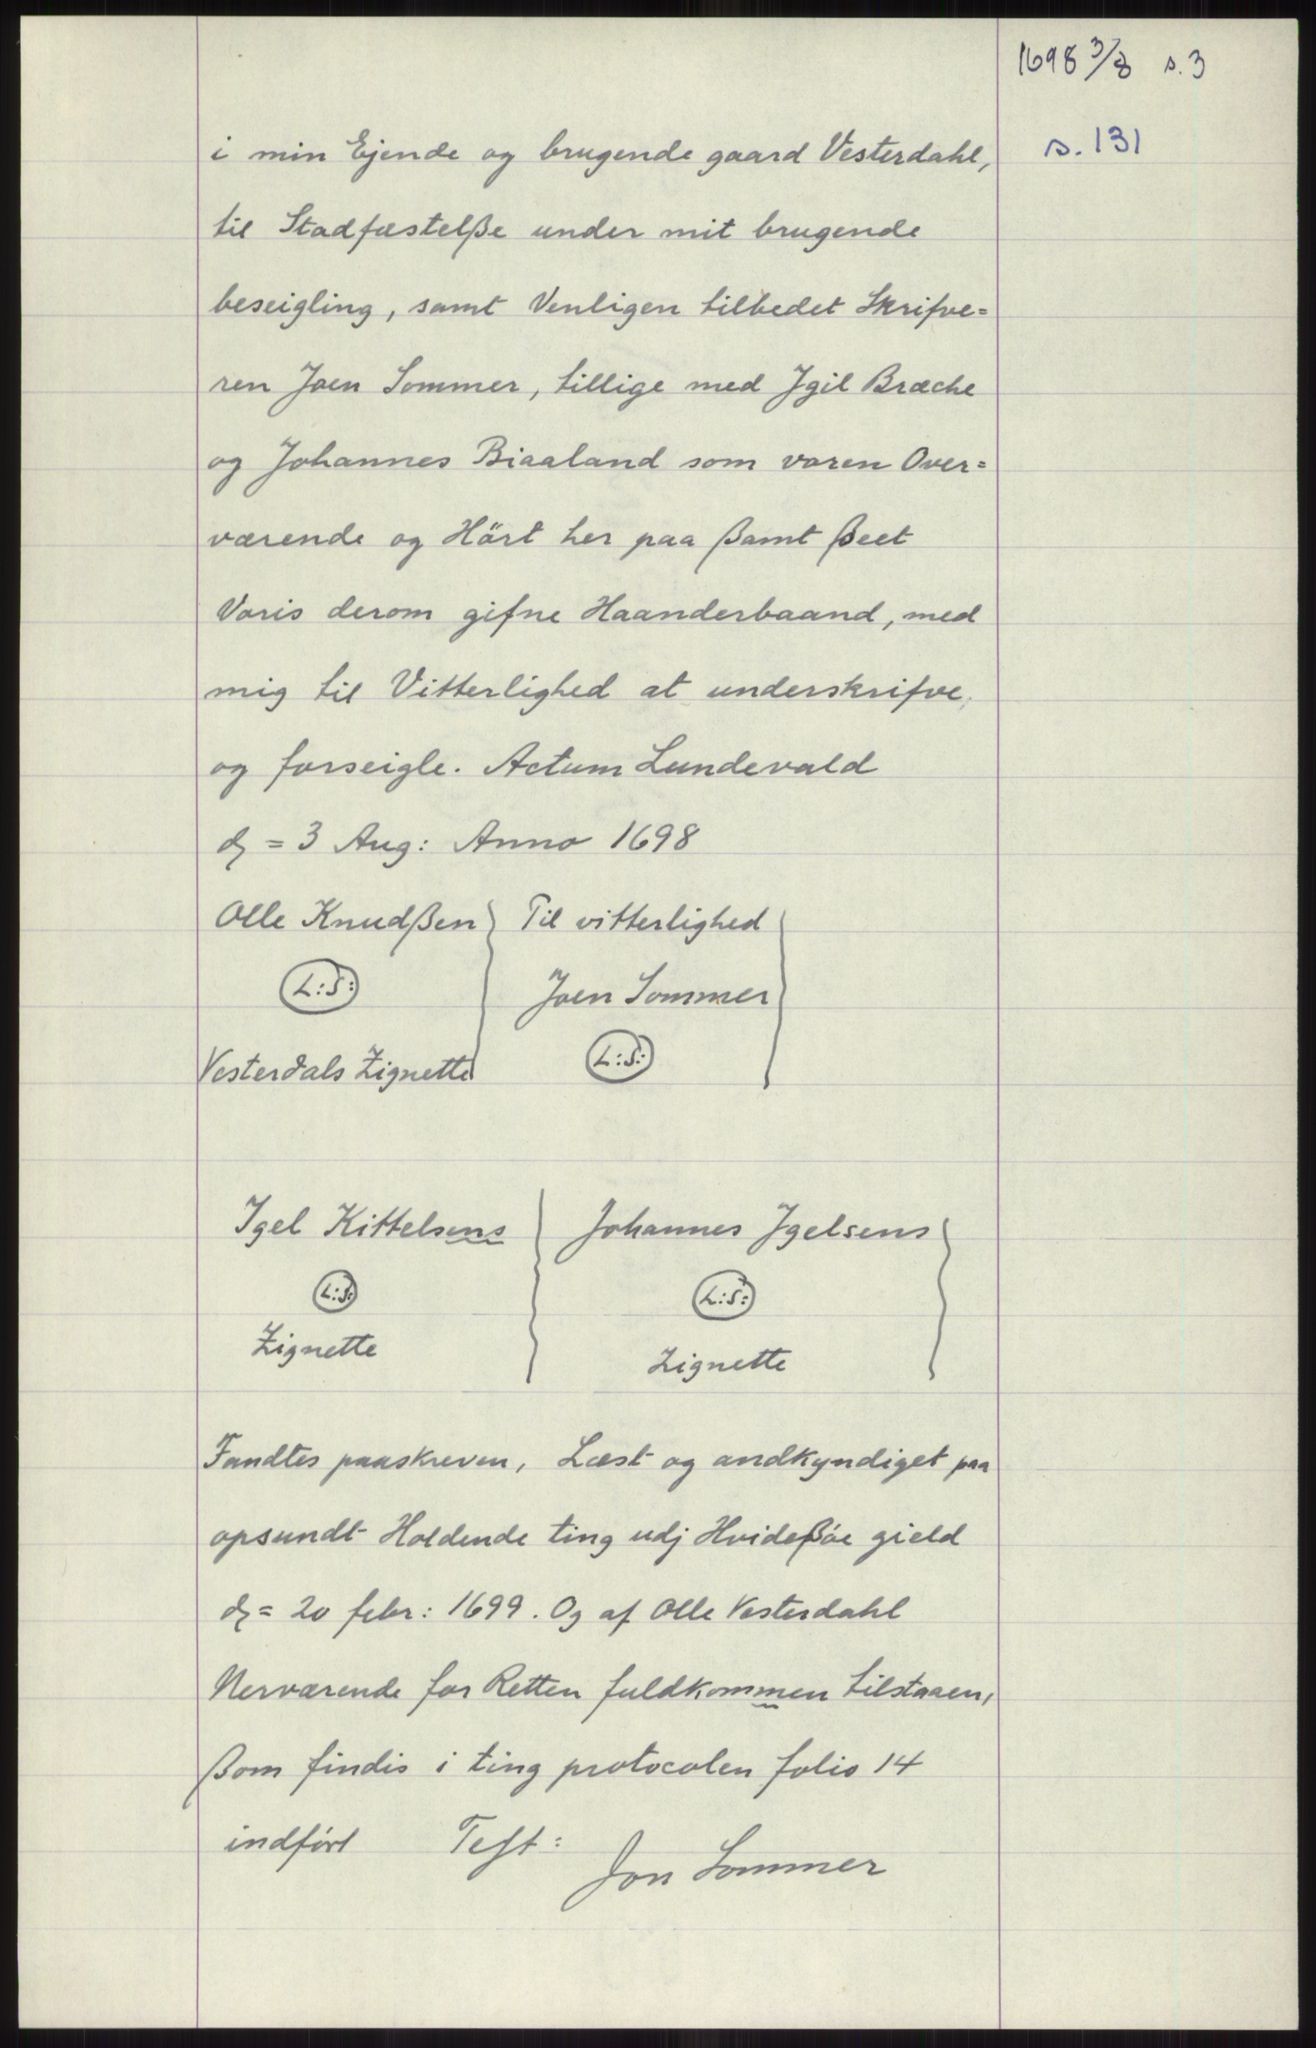 1698 3/8 s.3
s. 131
i min Ejende og brugende gaard Vesterdahl,
til Stadfæstelße under mit brugende
beseigling, samt Venligen tilbedet Skrifve=
ren Joen Sommer, tillige med Jgil Bræche
og Johannes Biaaland som varen Over=
værende og Hört her paa ßamt ßeet
Voris derom gifne Haanderbaand, med
mig til Vitterlighed at underskrifve,
og forseigle. Actum Lundevald
d = 3 Aug: Anno 1698
Olle Knudßen
L:S:
Vesterdals Zignette
Til vitterlighed
Joen Sommer
L:S:
Igel Kittelsens
L:S:
Zignette
Johannes Jgelsens
L:S:
Zignette
Fandtes paaskreven, Læst og andkyndiget paa
opsundt Holdende ting udj Hvideßöe gield
d = 20 febr: 1699. Og af Olle Vesterdahl
Nerværende for Retten fuldkommen tilstaaen,
ßom findis i ting protocolen folio 14
indført Test:
Jon Sommer